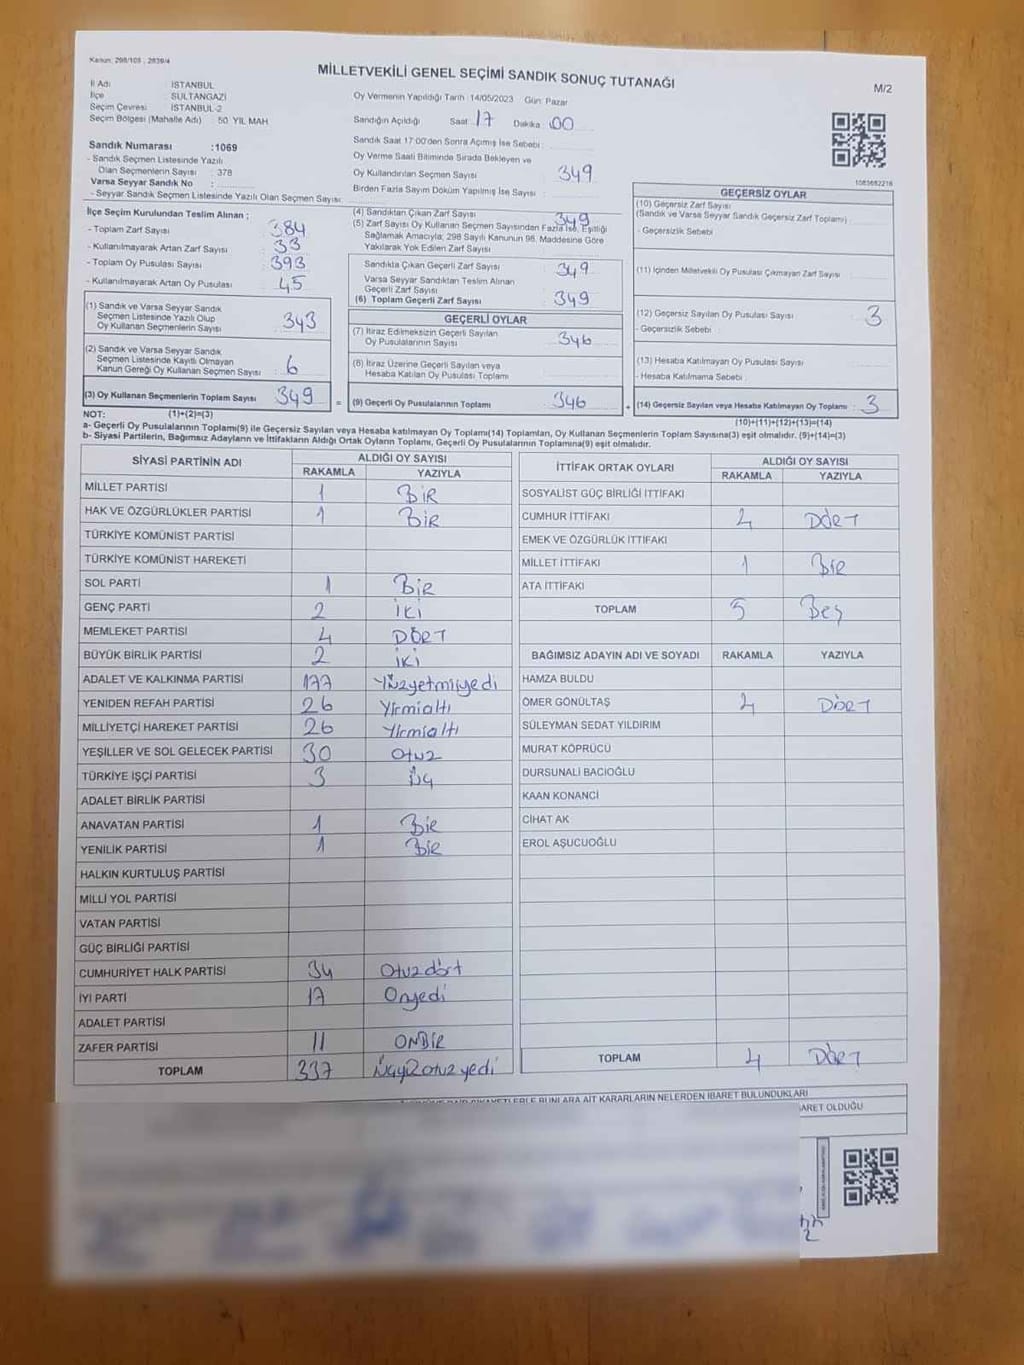 Kanun: 298/105 ; 2839/4
MİLLETVEKİLİ GENEL SEÇİMİ SANDIK SONUÇ TUTANAĞI
M/2
İl Adı : İSTANBUL
İlçe : SULTANGAZİ
Seçim Çevresi : İSTANBUL-2
Seçim Bölgesi (Mahalle Adı) : 50. YIL MAH
Oy Vermenin Yapıldığı Tarih :14/05/2023 Gün: Pazar
Sandığın Açıldığı Saat: 17 Dakika: 00
Sandık Saat 17:00'den Sonra Açılmış İse Sebebi :
Oy Verme Saati Bitiminde Sırada Bekleyen ve
Oy Kullandırılan Seçmen Sayısı 349
Birden Fazla Sayım Döküm Yapılmış İse Sayısı :
Sandık Numarası :1069
- Sandık Seçmen Listesinde Yazılı
Olan Seçmenlerin Sayısı : 378
Varsa Seyyar Sandık No :
- Seyyar Seçmen Listesinde Yazılı Olan Seçmen Sayısı:
İlçe Seçim Kurulundan Teslim Alınan ;
- Toplam Zarf Sayısı : 384
- Kullanılmayarak Artan Zarf Sayısı : 33
- Toplam Oy Pusulası Sayısı : 393
- Kullanılmayarak Artan Oy Pusulası : 45
(1) Sandık ve Varsa Seyyar Sandık
Seçmen Listesinde Yazılı Olup
Oy Kullanan Seçmenlerin Sayısı : 343
(2) Sandık ve Varsa Seyyar Sandık
Seçmen Listesinde Kayıtlı Olmayan
Kanun Gereği Oy Kullanan Seçmen Sayısı : 6
(3) Oy Kullanan Seçmenlerin Toplam Sayısı : 349
(4) Sandıktan Çıkan Zarf Sayısı : 349
(5) Zarf Sayısı Oy Kullanan Seçmen Sayısından Fazla İse, Eşitliği
Sağlamak Amacıyla; 298 Sayılı Kanunun 98. Maddesine Göre
Yakılarak Yok Edilen Zarf Sayısı :
Sandıkta Çıkan Geçerli Zarf Sayısı : 349
Varsa Seyyar Sandıktan Teslim Alınan
Geçerli Zarf Sayısı
(6) Toplam Geçerli Zarf Sayısı : 349
GEÇERLİ OYLAR
(7) İtiraz Edilmeksizin Geçerli Sayılan
Oy Pusulalarının Sayısı : 346
(8) İtiraz Üzerine Geçerli Sayılan veya
Hesaba Katılan Oy Pusulası Toplamı :
= (9) Geçerli Oy Pusulalarının Toplamı : 346
1083682216
GEÇERSİZ OYLAR
(10) Geçersiz Zarf Sayısı
(Sandık ve Varsa Seyyar Sandık Geçersiz Zarf Toplamı) :
- Geçersizlik Sebebi :
(11) İçinden Milletvekili Oy Pusulası Çıkmayan Zarf Sayısı :
(12) Geçersiz Sayılan Oy Pusulası Sayısı : 3
- Geçersizlik Sebebi :
(13) Hesaba Katılmayan Oy Pusulası Sayısı :
- Hesaba Katılmama Sebebi :
+ (14) Geçersiz Sayılan veya Hesaba Katılmayan Oy Toplamı : 3
NOT: (1)+(2)=(3) (10)+(11)+(12)+(13)=(14)
a- Geçerli Oy Pusulalarının Toplamı(9) ile Geçersiz Sayılan veya Hesaba katılmayan Oy Toplamı(14) Toplamları, Oy Kullanan Seçmenlerin Toplam Sayısına(3) eşit olmalıdır. (9)+(14)=(3)
b- Siyasi Partilerin, Bağımsız Adayların ve İttifakların Aldığı Ortak Oyların Toplamı, Geçerli Oy Pusulalarının Toplamına(9) eşit olmalıdır.
SİYASİ PARTİNİN ADI ALDIĞI OY SAYISI
RAKAMLA YAZIYLA
MİLLET PARTİSİ 1 BİR
HAK VE ÖZGÜRLÜKLER PARTİSİ 1 BİR
TÜRKİYE KOMÜNİST PARTİSİ
TÜRKİYE KOMÜNİST HAREKETİ
SOL PARTİ 1 BİR
GENÇ PARTİ 2 İKİ
MEMLEKET PARTİSİ 4 DÖRT
BÜYÜK BİRLİK PARTİSİ 2 İKİ
ADALET VE KALKINMA PARTİSİ 177 Yüzyetmişyedi
YENİDEN REFAH PARTİSİ 26 Yirmialtı
MİLLİYETÇİ HAREKET PARTİSİ 26 Yirmialtı
YEŞİLLER VE SOL GELECEK PARTİSİ 30 Otuz
TÜRKİYE İŞÇİ PARTİSİ 3 Üç
ADALET BİRLİK PARTİSİ
ANAVATAN PARTİSİ 1 Bir
YENİLİK PARTİSİ 1 Bir
HALKIN KURTULUŞ PARTİSİ
MİLLİ YOL PARTİSİ
VATAN PARTİSİ
GÜÇ BİRLİĞİ PARTİSİ
CUMHURİYET HALK PARTİSİ 34 Otuzdört
İYİ PARTİ 17 Onyedi
ADALET PARTİSİ
ZAFER PARTİSİ 11 ONBİR
TOPLAM 337 Üçyüzotuzyedi
İTTİFAK ORTAK OYLARI ALDIĞI OY SAYISI
RAKAMLA YAZIYLA
SOSYALİST GÜÇ BİRLİĞİ İTTİFAKI
CUMHUR İTTİFAKI 4 DÖRT
EMEK VE ÖZGÜRLÜK İTTİFAKI
MİLLET İTTİFAKI 1 Bir
ATA İTTİFAKI
TOPLAM 5 Beş
BAĞIMSIZ ADAYIN ADI VE SOYADI RAKAMLA YAZIYLA
HAMZA BULDU
ÖMER GÖNÜLTAŞ 4 DÖRT
SÜLEYMAN SEDAT YILDIRIM
MURAT KÖPRÜCÜ
DURSUNALİ BACIOĞLU
KAAN KONANCİ
CİHAT AK
EROL AŞUCUOĞLU
TOPLAM 4 DÖRT
BUNLARA AİT KARARLARIN NELERDEN İBARET BULUNDUKLARI
ARET OLDUĞU